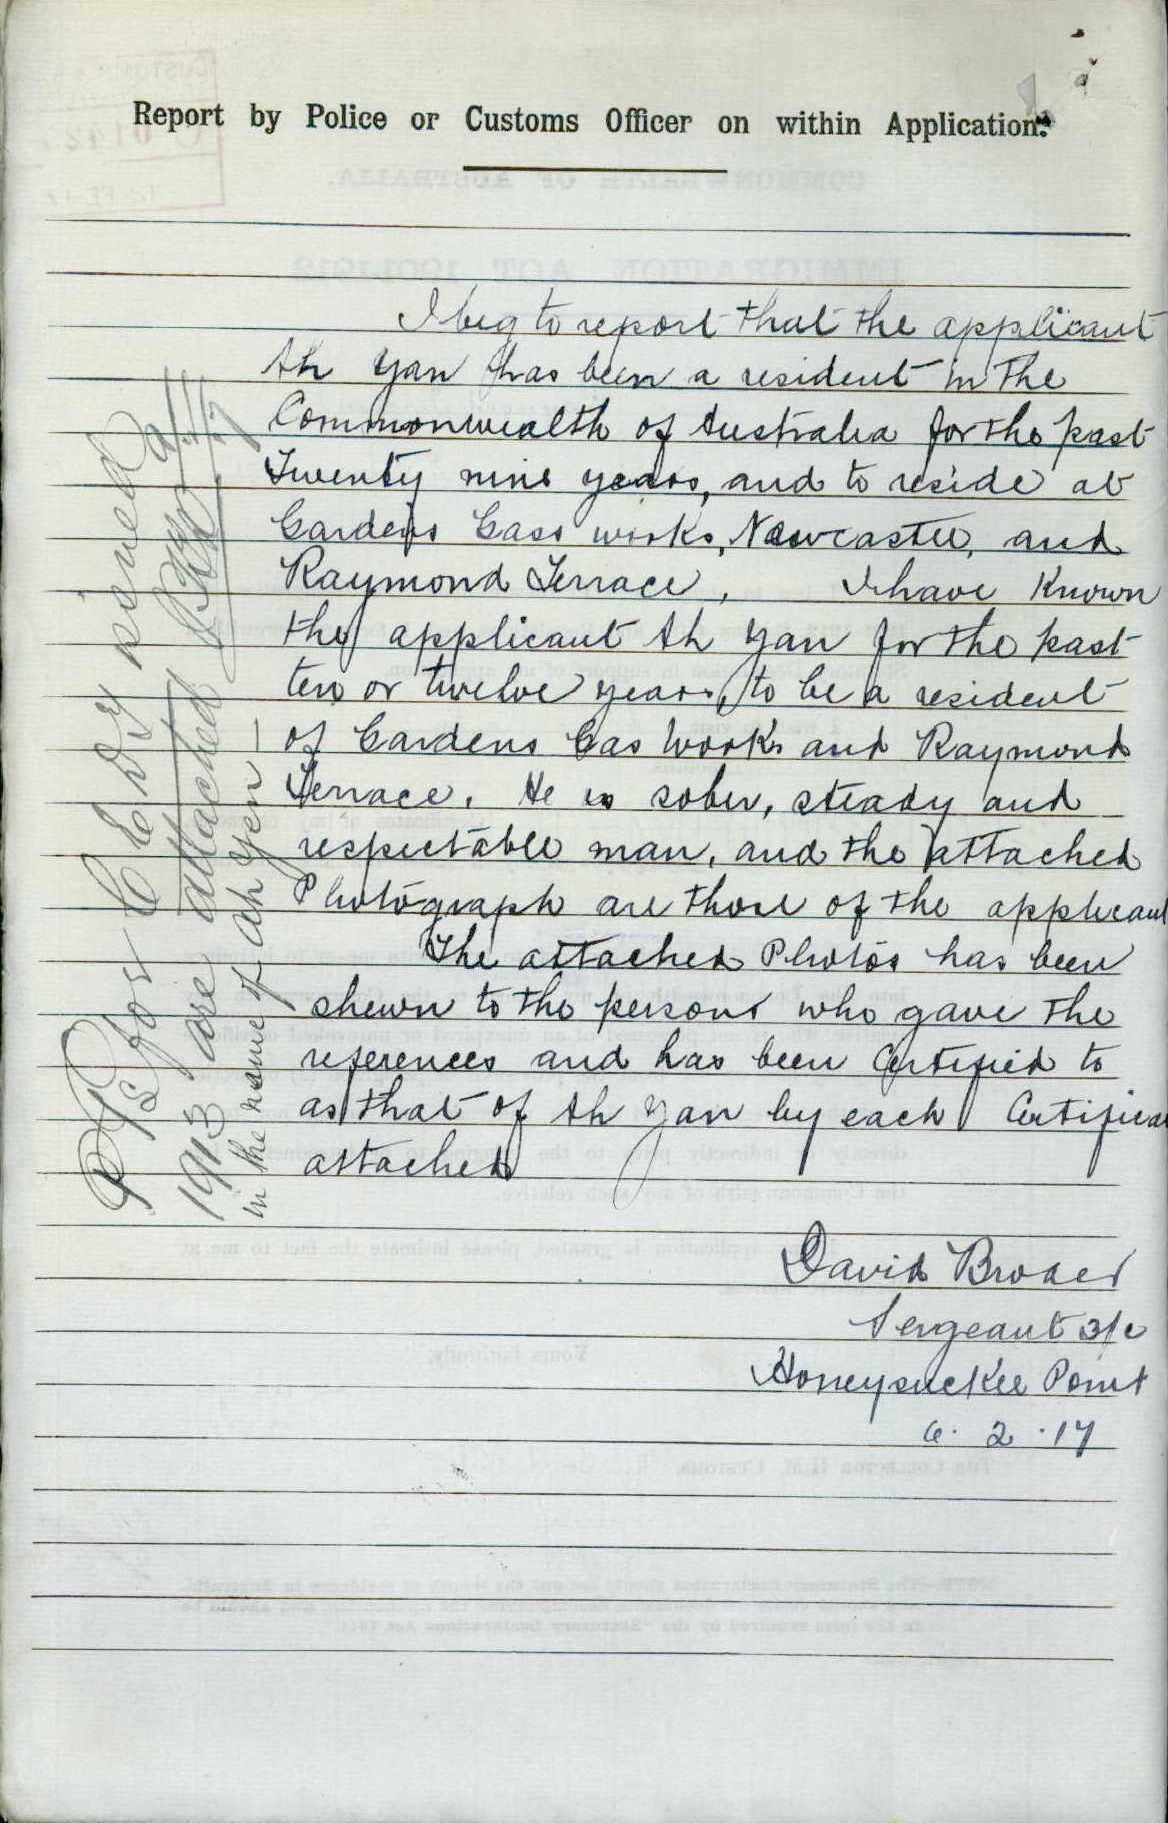 Report by Police or Customs Officer on within Application.
I beg to report that the applicant
Ah Yan has been a resident in the
Commonwealth of Australia for the past
Twenty nine years, and to reside at
Gardens Gass works, Newcastle, and
Raymond Terrace, I have Known
the applicant Ah Yan for the past
ten or twelve years, to be a resident
of Gardens Gas Works and Raymond
Terrace. He is sober, steady and
respectable man, and the attached
Photograph are those of the applicant
The attached Photos has been
shewn to the persons who gave the
references and has been Certified to
as that of Ah Yan by each
attached
David
Sergeant 3/c
Honeysuckle Point
6. 2 .17
for CEDT issued
1913 are attached
in the name of Ah Yen